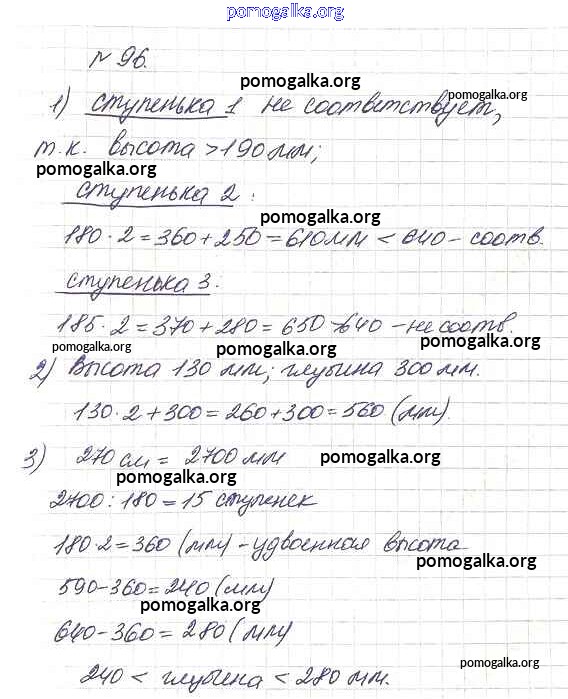 pomogalka.org
N 96.
pomogalka.org pomogalka.org
1) ступенька 1 не соответствует,
т.к. высота >190 мм;
pomogalka.org
ступенька 2:
pomogalka.org
180·2=360+250=610мм < 640 - соотв.
ступенька 3.
185·2=370+280=650>640 - не соотв.
pomogalka.org pomogalka.org pomogalka.org
2) Высота 130 мм; глубина 300 мм.
130·2+300=260+300=560 (мм).
3) 270 см = 2700 мм pomogalka.org
pomogalka.org
2700:180=15 ступенек
180·2=360 (мм) - удвоенная высота
pomogalka.org
590-360=240 (мм)
pomogalka.org
640-360=280 (мм)
240 < глубина < 280 мм.
pomogalka.org